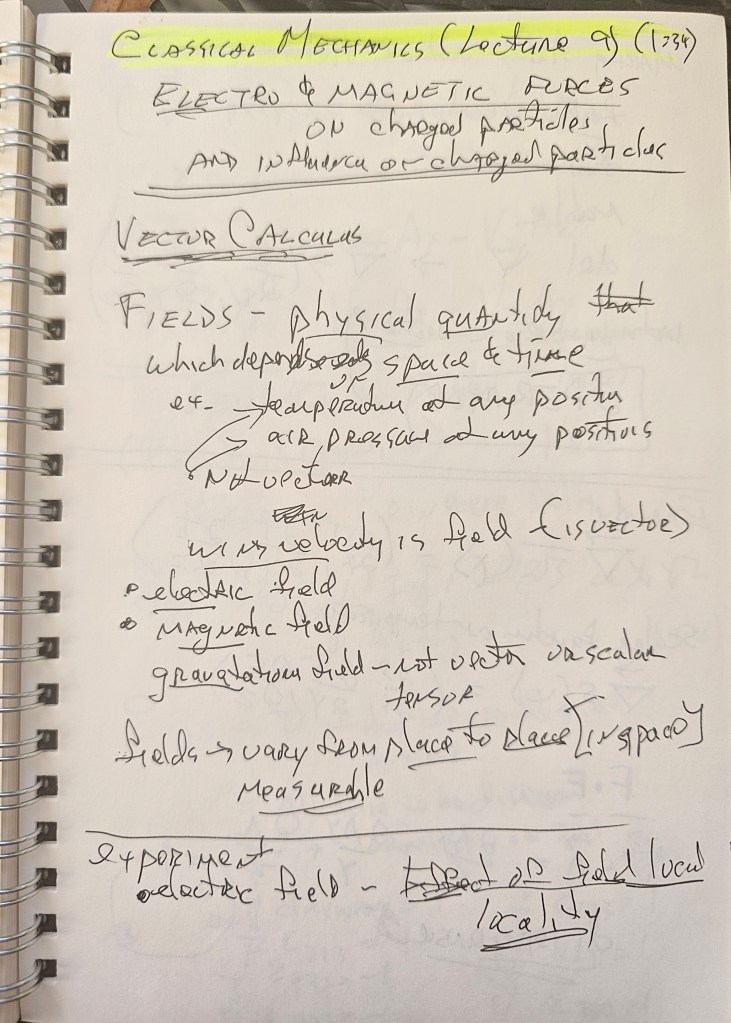 CLASSICAL MECHANICS (Lecture 9) (1:34)
ELECTRO & MAGNETIC FORCES
ON charged particles
AND influence of charged particles
VECTOR CALCULUS
FIELDS - physical quantity that
which depends on space & time
ex. → temperature at any position
→ air pressure at any positions
Not vector
wind velocity is field (is vector)
• electric field
• magnetic field
gravatation field - not vector or scalar
tensor
fields → vary from place to place [in space]
measurable
experiment
electric field - Effect of field local
locality